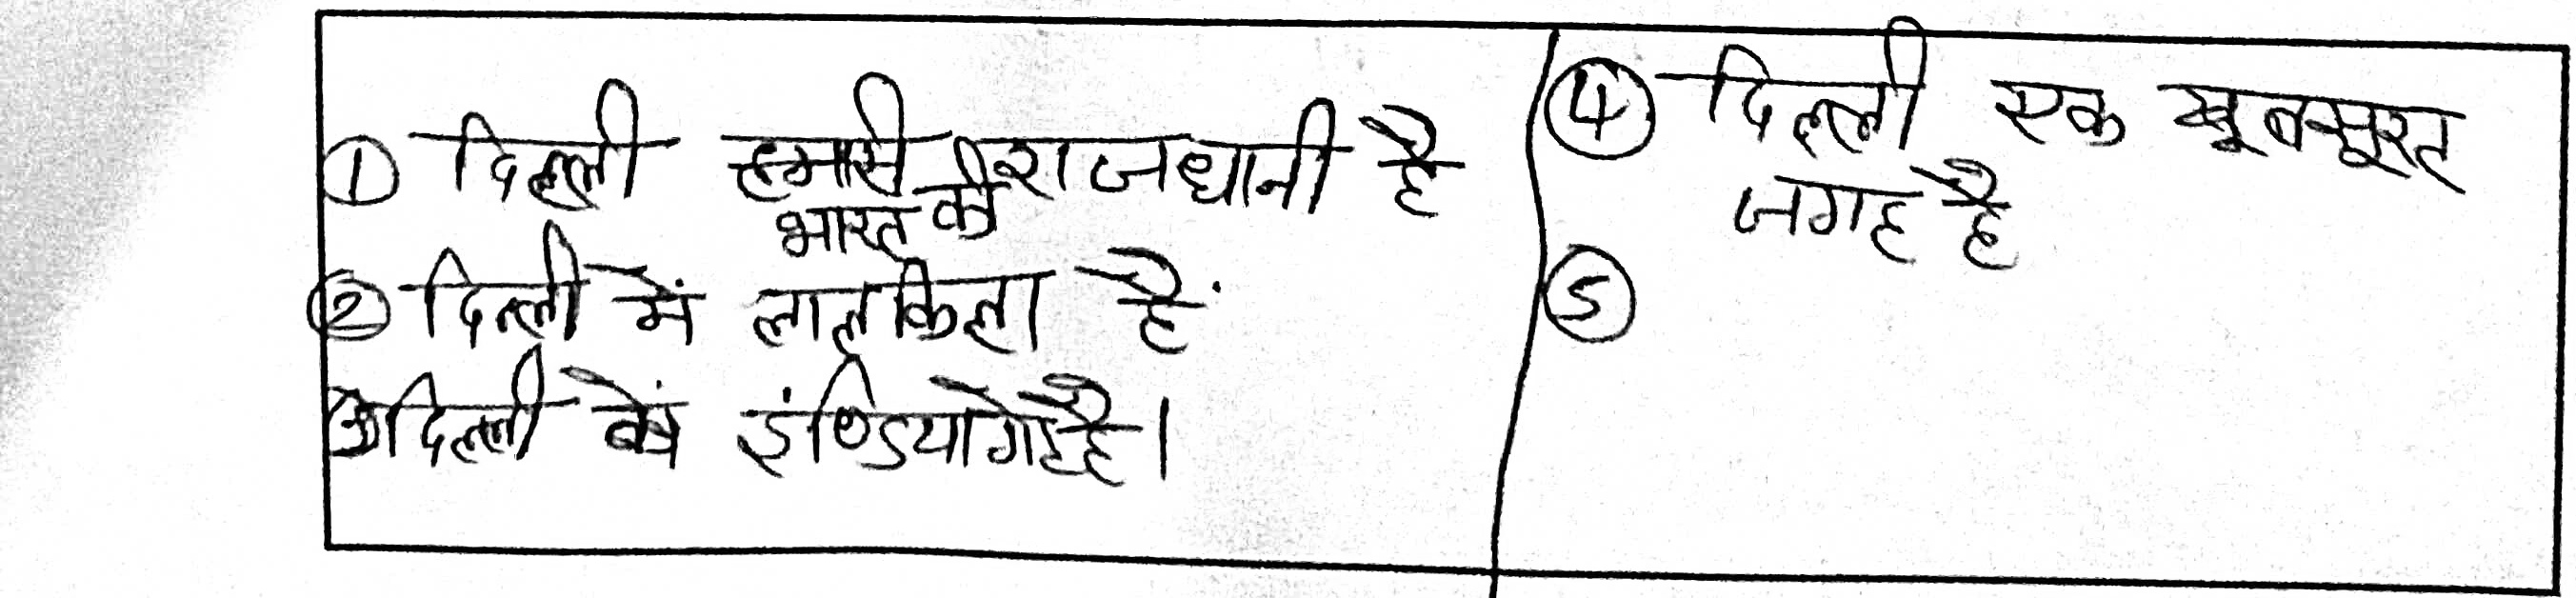 ① दिल्ली हमारी राजधानी है
भारत की
② दिल्ली में लालकिला है
③ दिल्ली में इंण्डिया गेट है।
④ दिल्ली एक खूबसूरत
जगह है
⑤